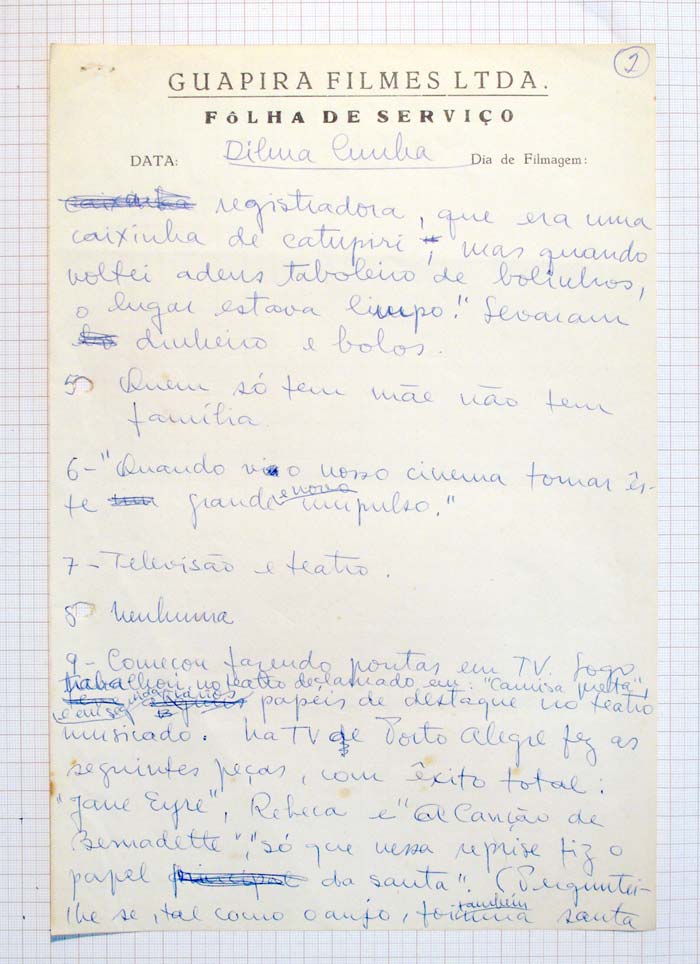 2
GUAPIRA FILMES LTDA.
FÔLHA DE SERVIÇO
DATA: Dilma Cunha Dia de Filmagem:
registradora, que era uma
caixinha de catupiri, mas quando
voltei adeus taboleiro de bolinhos,
o lugar estava limpo." Levaram
dinheiro e bolos.
5 Quem só tem mãe não tem
família.
6-"Quando vi o nosso cinema tomar ês-
te grande e novo impulso."
7-Televisão e teatro.
8 Nenhuma
9- Começou fazendo pontas em TV. Logo
trabalhou no teatro declamado em: "Camisa preta",
e em seguida vários papéis de destaque no teatro
musicado. Na TV de Porto Alegre fez as
seguintes peças, com êxito total:
"Jane Eyre", Rebeca e "A Canção de
Bernadette", "só que nessa reprise fiz o
papel principal da santa". (Perguntei-
lhe se, tal como o anjo, foi também uma santa